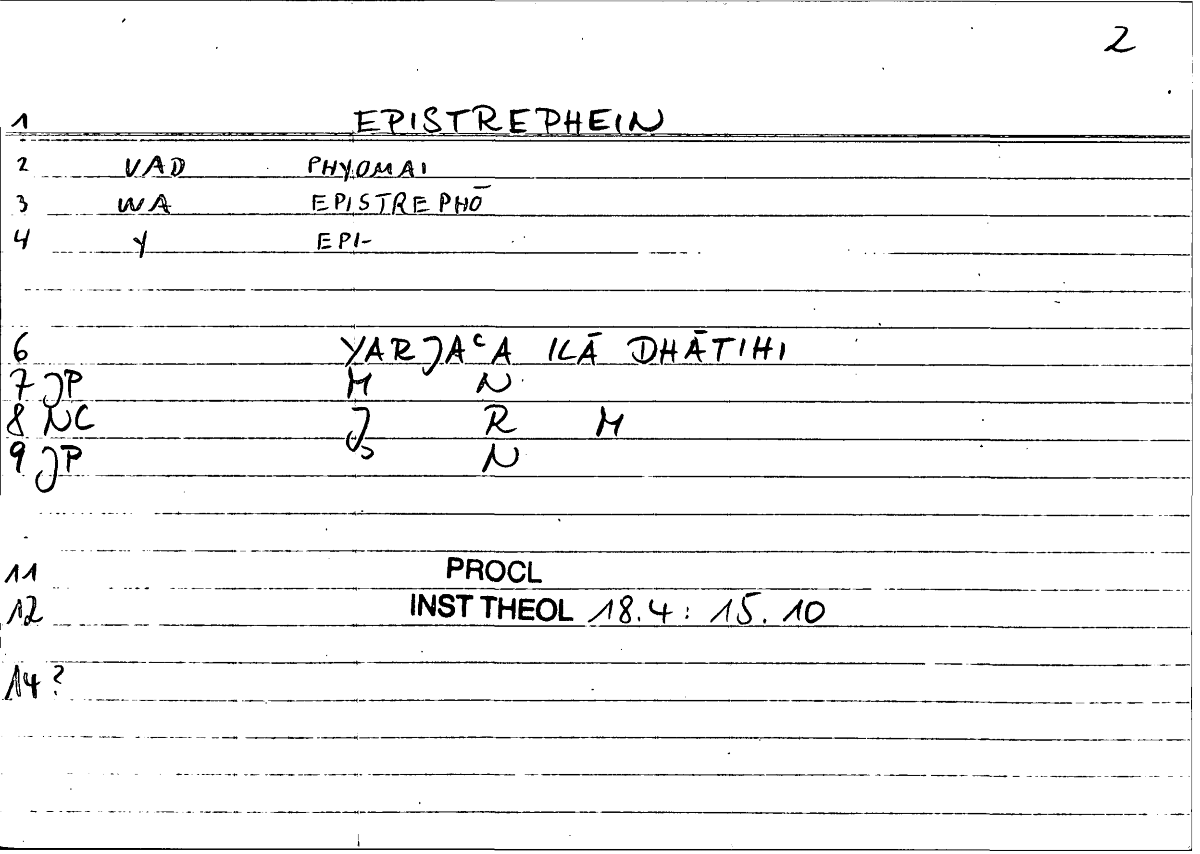 2
1 EPISTREPHEIN
2 VAD PHYOMAI
3 WA EPISTREPHŌ
4 Y EPI-
6 YARJAᶜA ILĀ DHĀTIHI
7 JP M N
8 NC J R M
9 JP J N
11 PROCL
12 INST THEOL 18.4: 15.10
14?